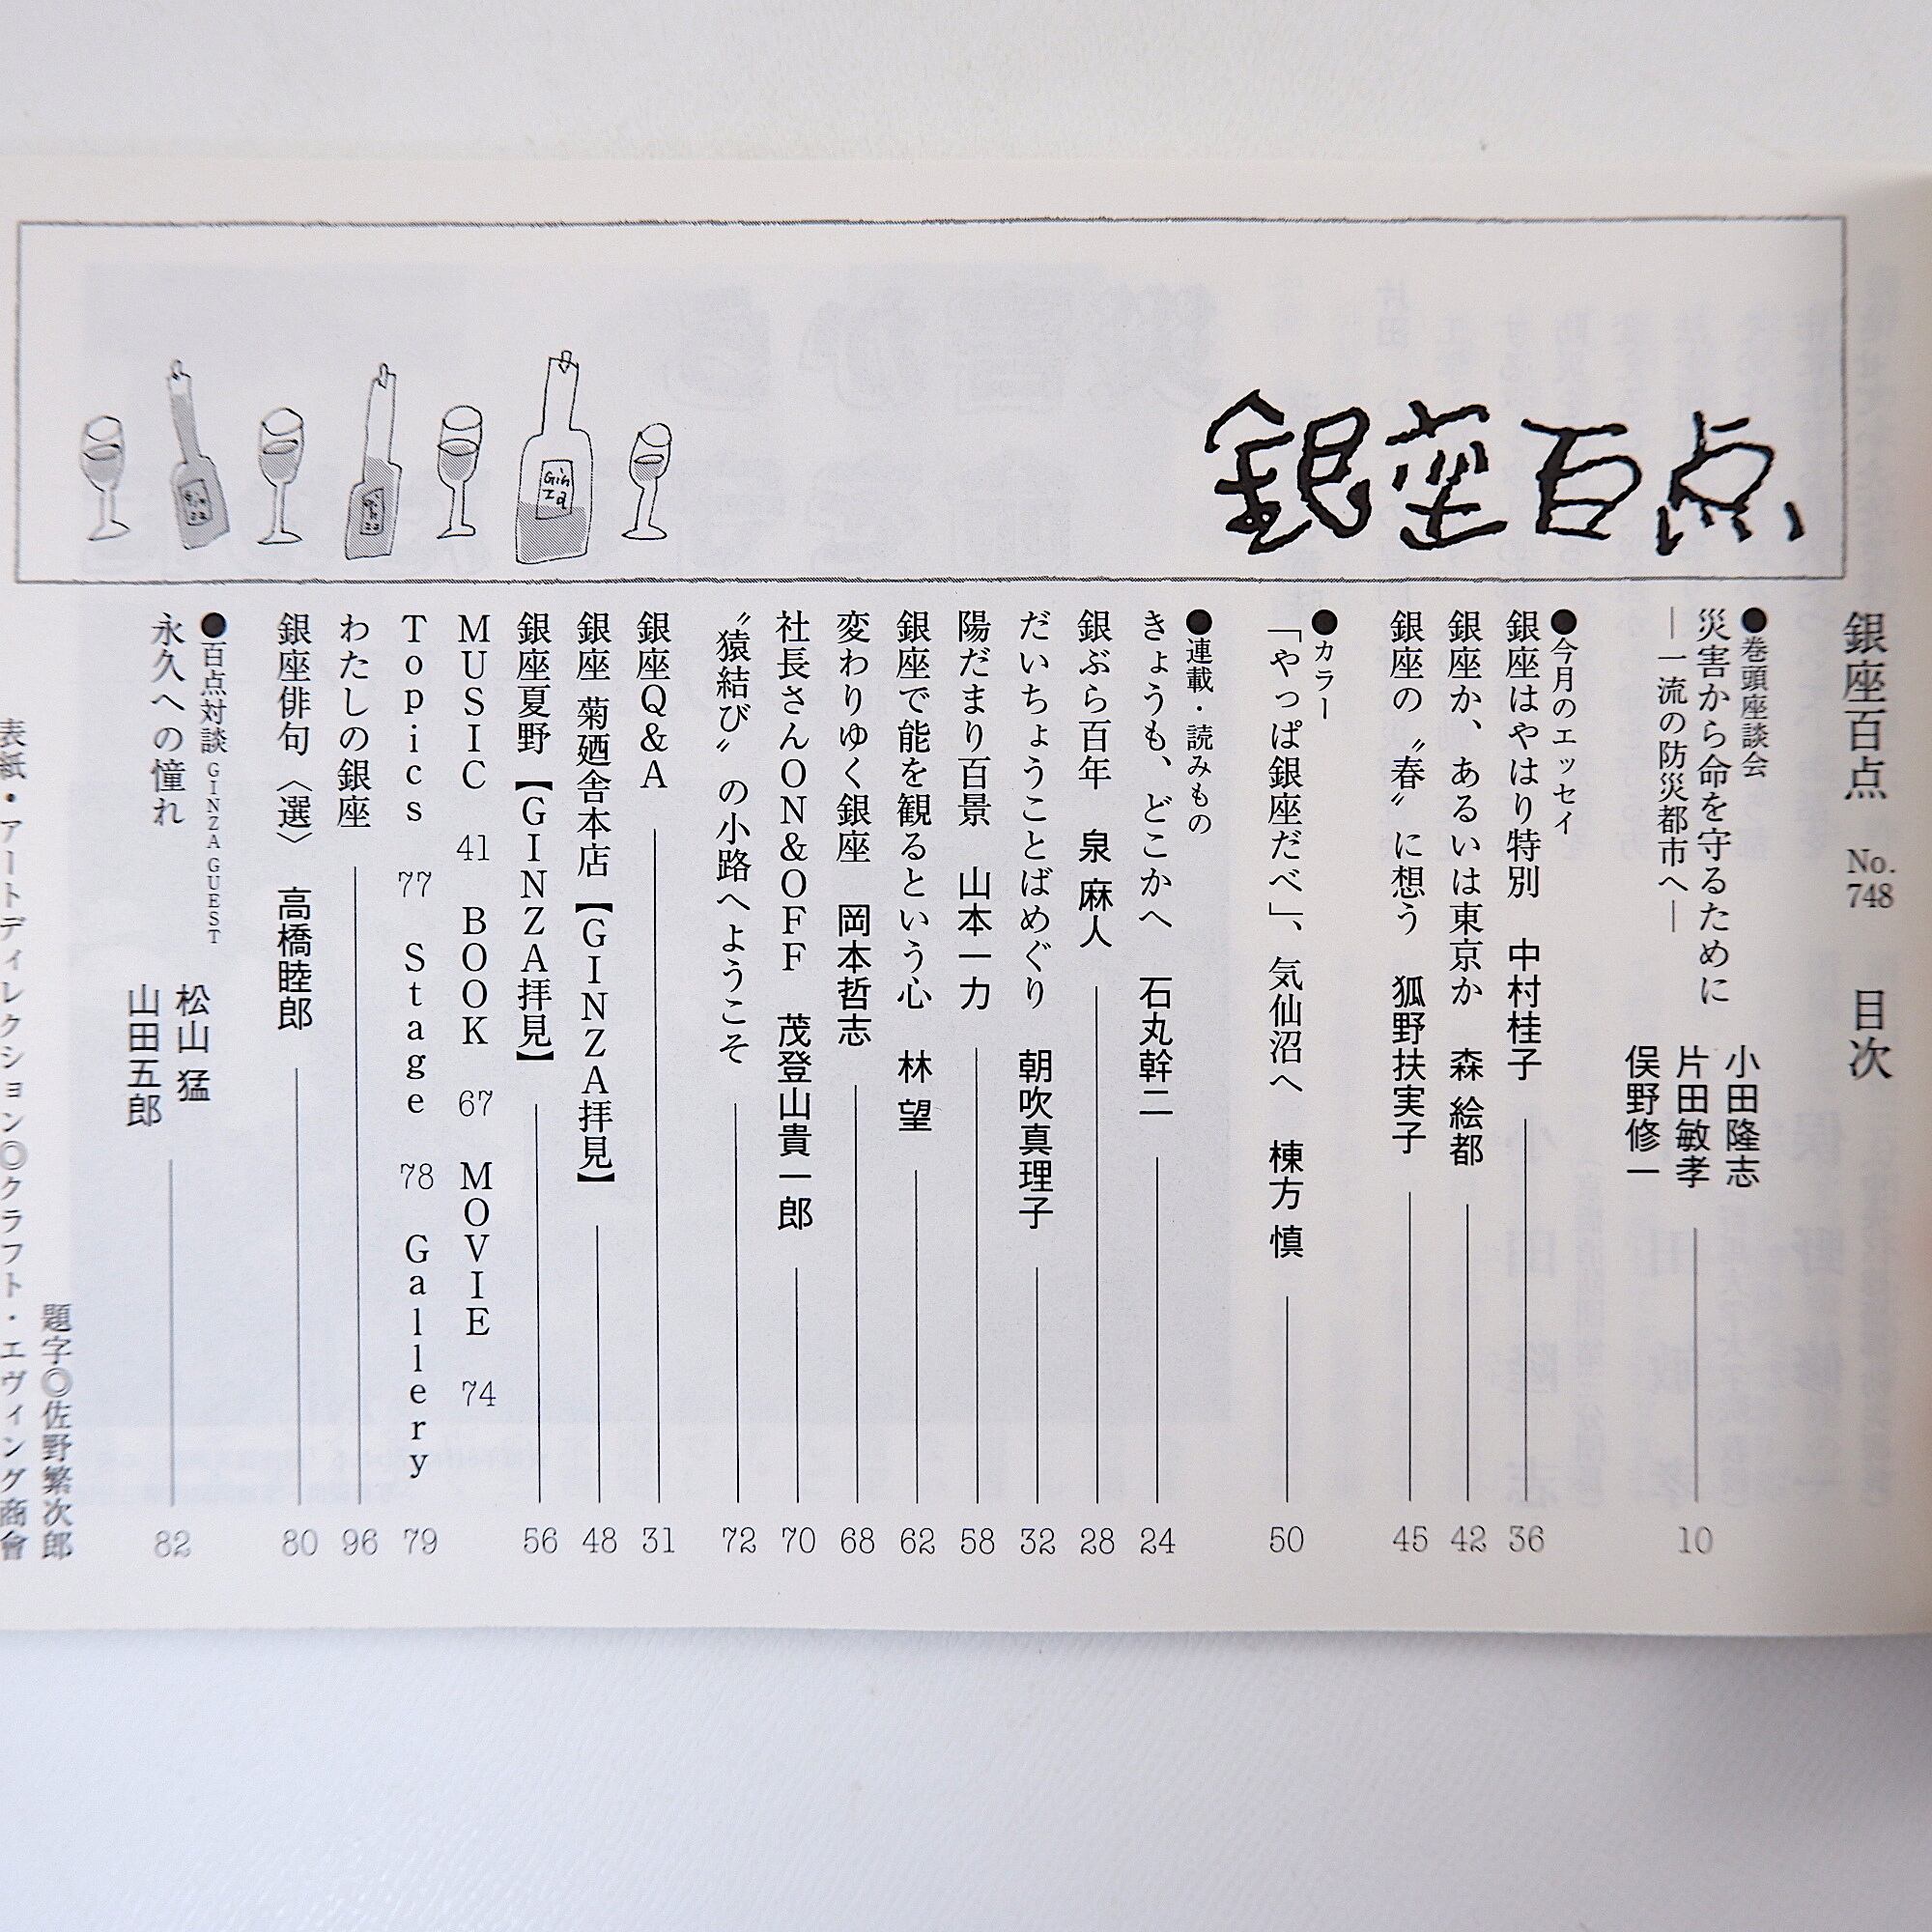 銀座百点
銀座百点 No.748 目次
●巻頭座談会
災害から命を守るために
―一流の防災都市へ―
小田隆志
片田敏孝
俣野修一
10
●今月のエッセイ
銀座はやはり特別 中村桂子 36
銀座か、あるいは東京か 森 絵都 42
銀座の〝春〟に想う 狐野扶実子 45
●カラー
「やっぱ銀座だべ」、気仙沼へ 棟方 慎 50
●連載・読みもの
きょうも、どこかへ 石丸幹二 24
銀ぶら百年 泉 麻人 28
だいちょうことばめぐり 朝吹真理子 32
陽だまり百景 山本一力 58
銀座で能を観るという心 林 望 62
変わりゆく銀座 岡本哲志 68
社長さんON&OFF 茂登山貴一郎 70
〝猿結び〟の小路へようこそ 72
銀座Q&A 31
銀座 菊廼舎本店【GINZA拝見】 48
銀座夏野【GINZA拝見】 56
MUSIC 41 BOOK 67 MOVIE 74
Topics 77 Stage 78 Gallery 79
わたしの銀座 96
銀座俳句〈選〉 高橋睦郎 80
●百点対談 GINZA GUEST
永久への憧れ
松山 猛
山田五郎
82
題字◎佐野繁次郎
表紙・アートディレクション◎クラフト・エヴィング商會
Ginza